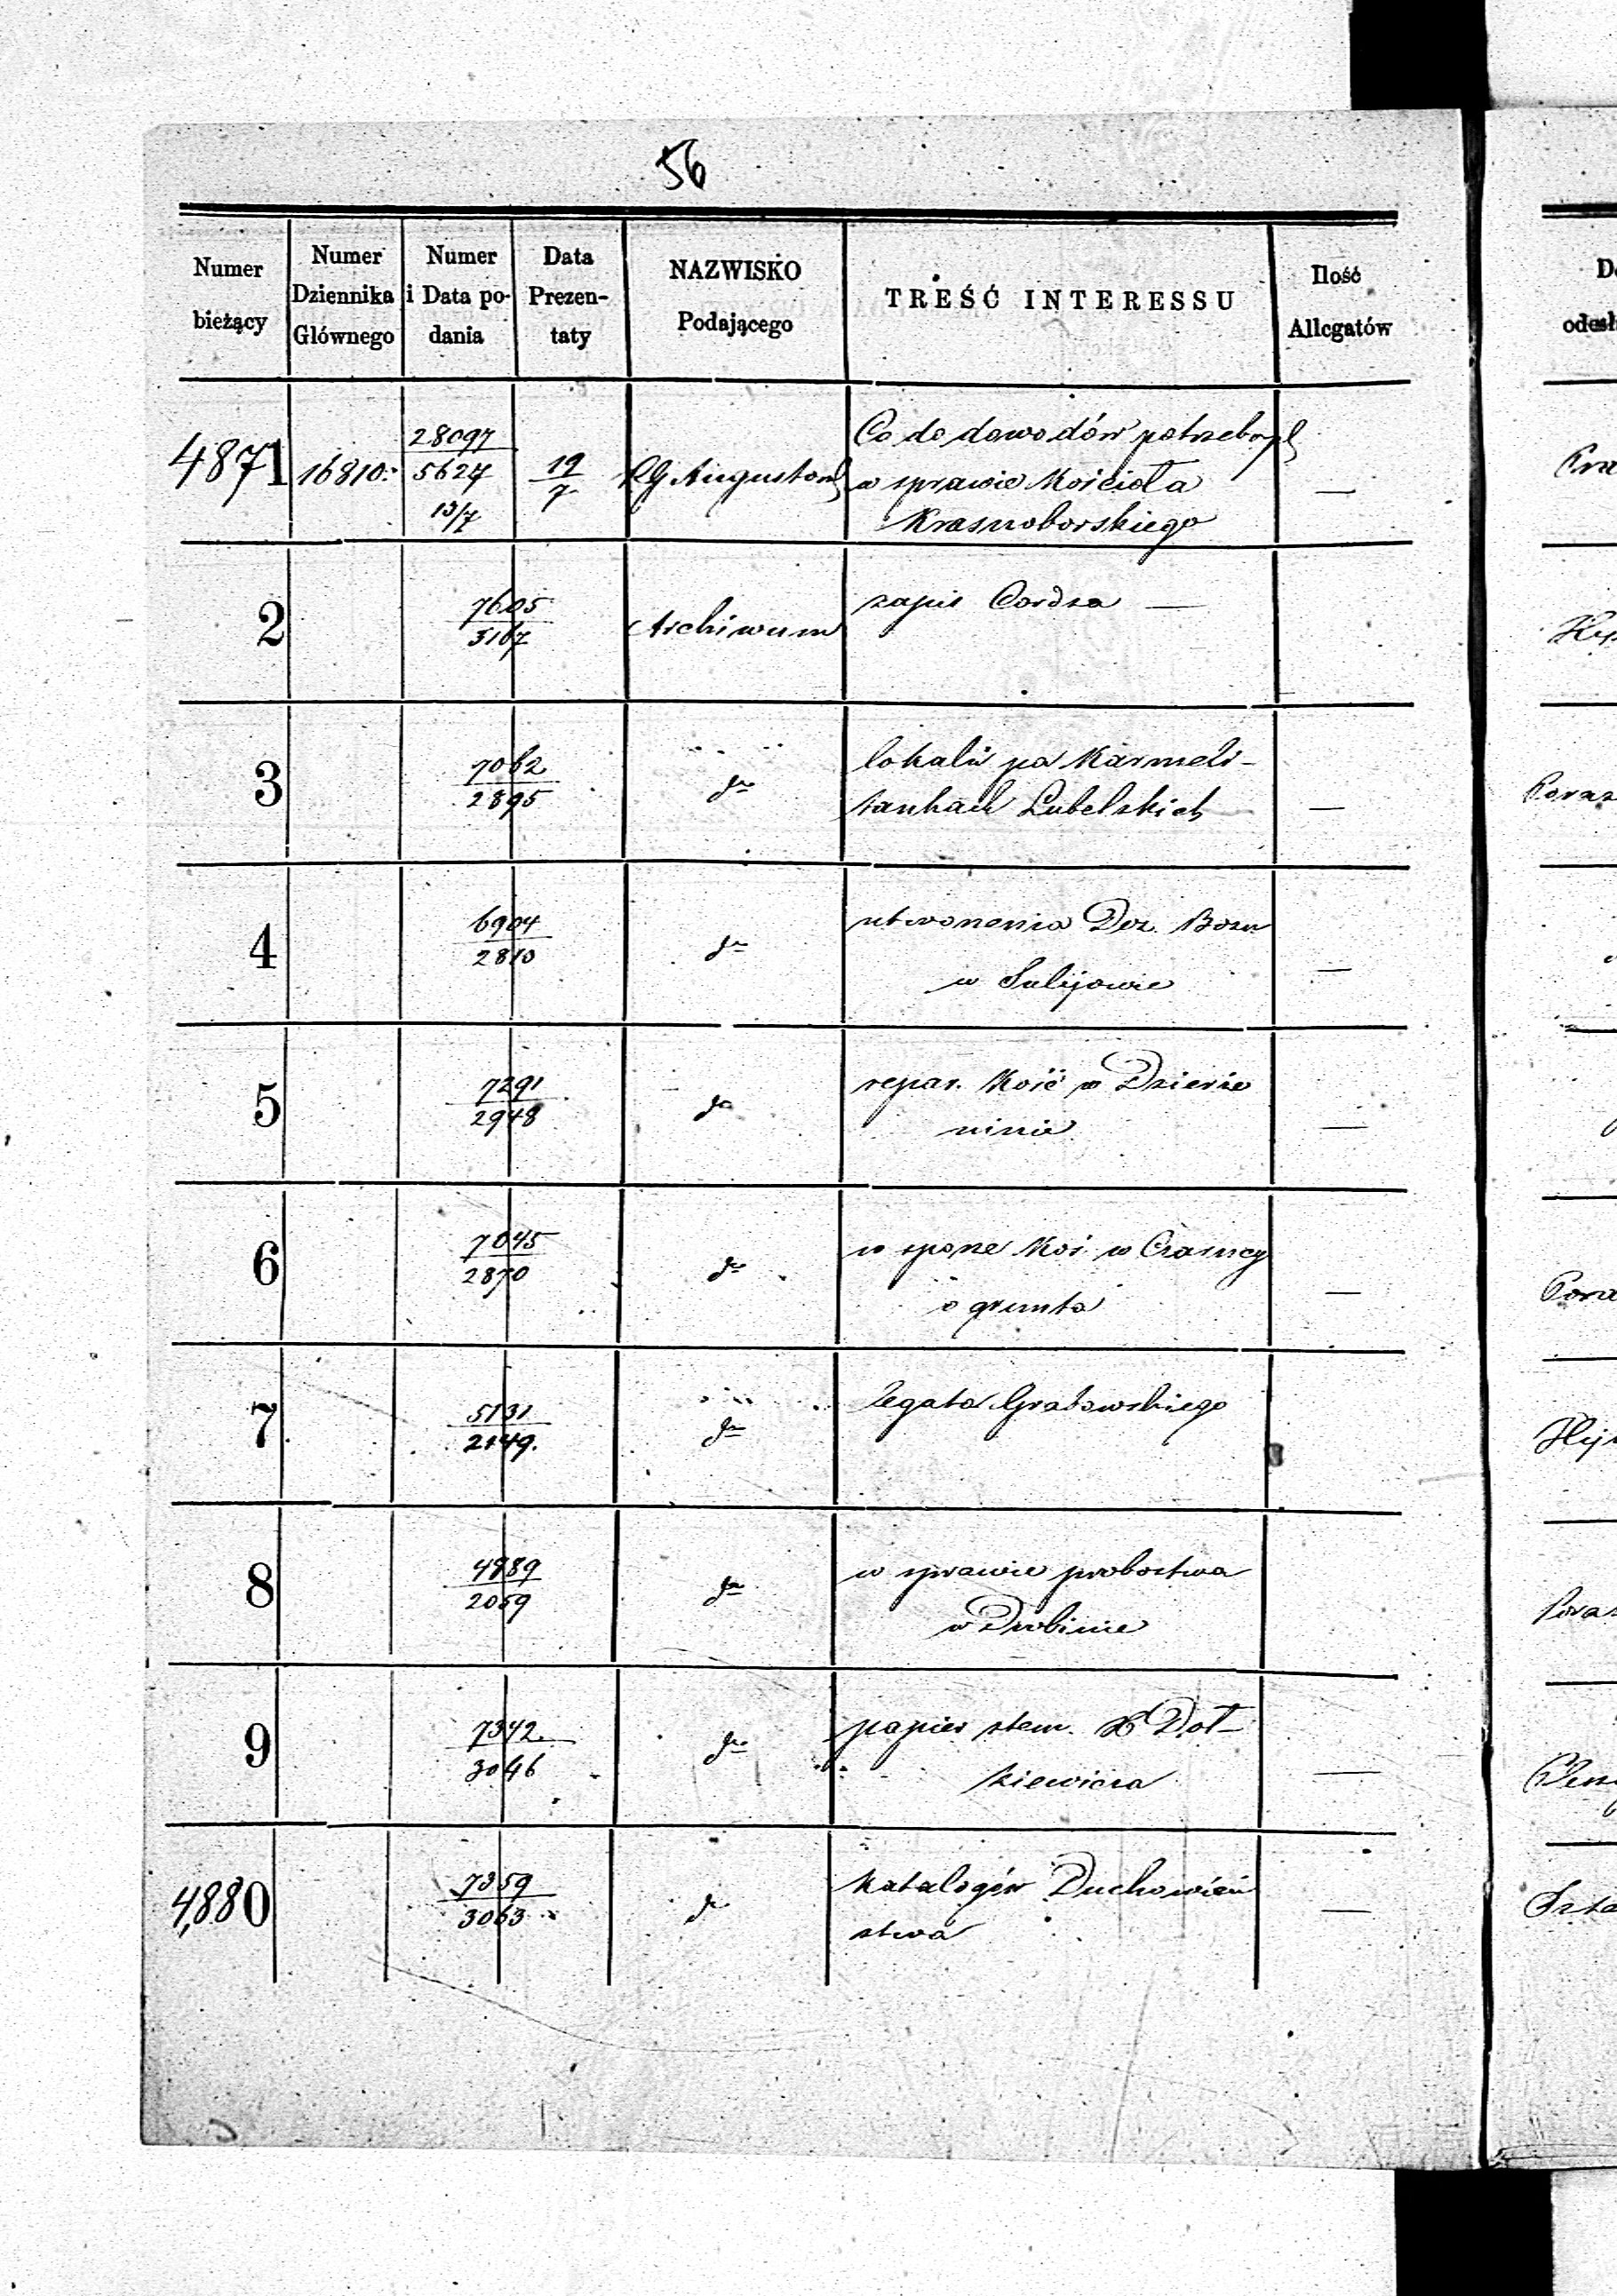 56
Numer bieżący | Numer Dziennika Głównego | Numer i Data podania | Data Prezentaty | NAZWISKO Podającego | TREŚĆ INTERESSU | Ilość Allegatów
4871 | 16810. | 28097 / 5624 13/7 | 19/7 | RG Augustow | Co do dowodów potrzebnych
w sprawie Kościoła —
Krasnoborskiego
2 | 7605 / 3167 | Archiwum | zapis Cordza —
3 | 7062 / 2895 | do | lokalu po Karmeli-
tankach Lubelskich —
4 | 6904 / 2810 | do | utworzenia Doz. Bozn
w Sulijowie —
5 | 7291 / 2948 | do | repar. Kość w Dzierże
ninie —
6 | 7045 / 2870 | do | w sporze Koś. w Czarncy
o grunta —
7 | 5131 / 2149. | do | legata Grabowskiego
8 | 4889 / 2059 | do | w sprawie probostwa
w Drobinie
9 | 7342. / 3046 | do | papier stem. X Doł-
kiewicza —
4,880 | 7359 / 3063 | do | Katalogów Duchowień
stwa —